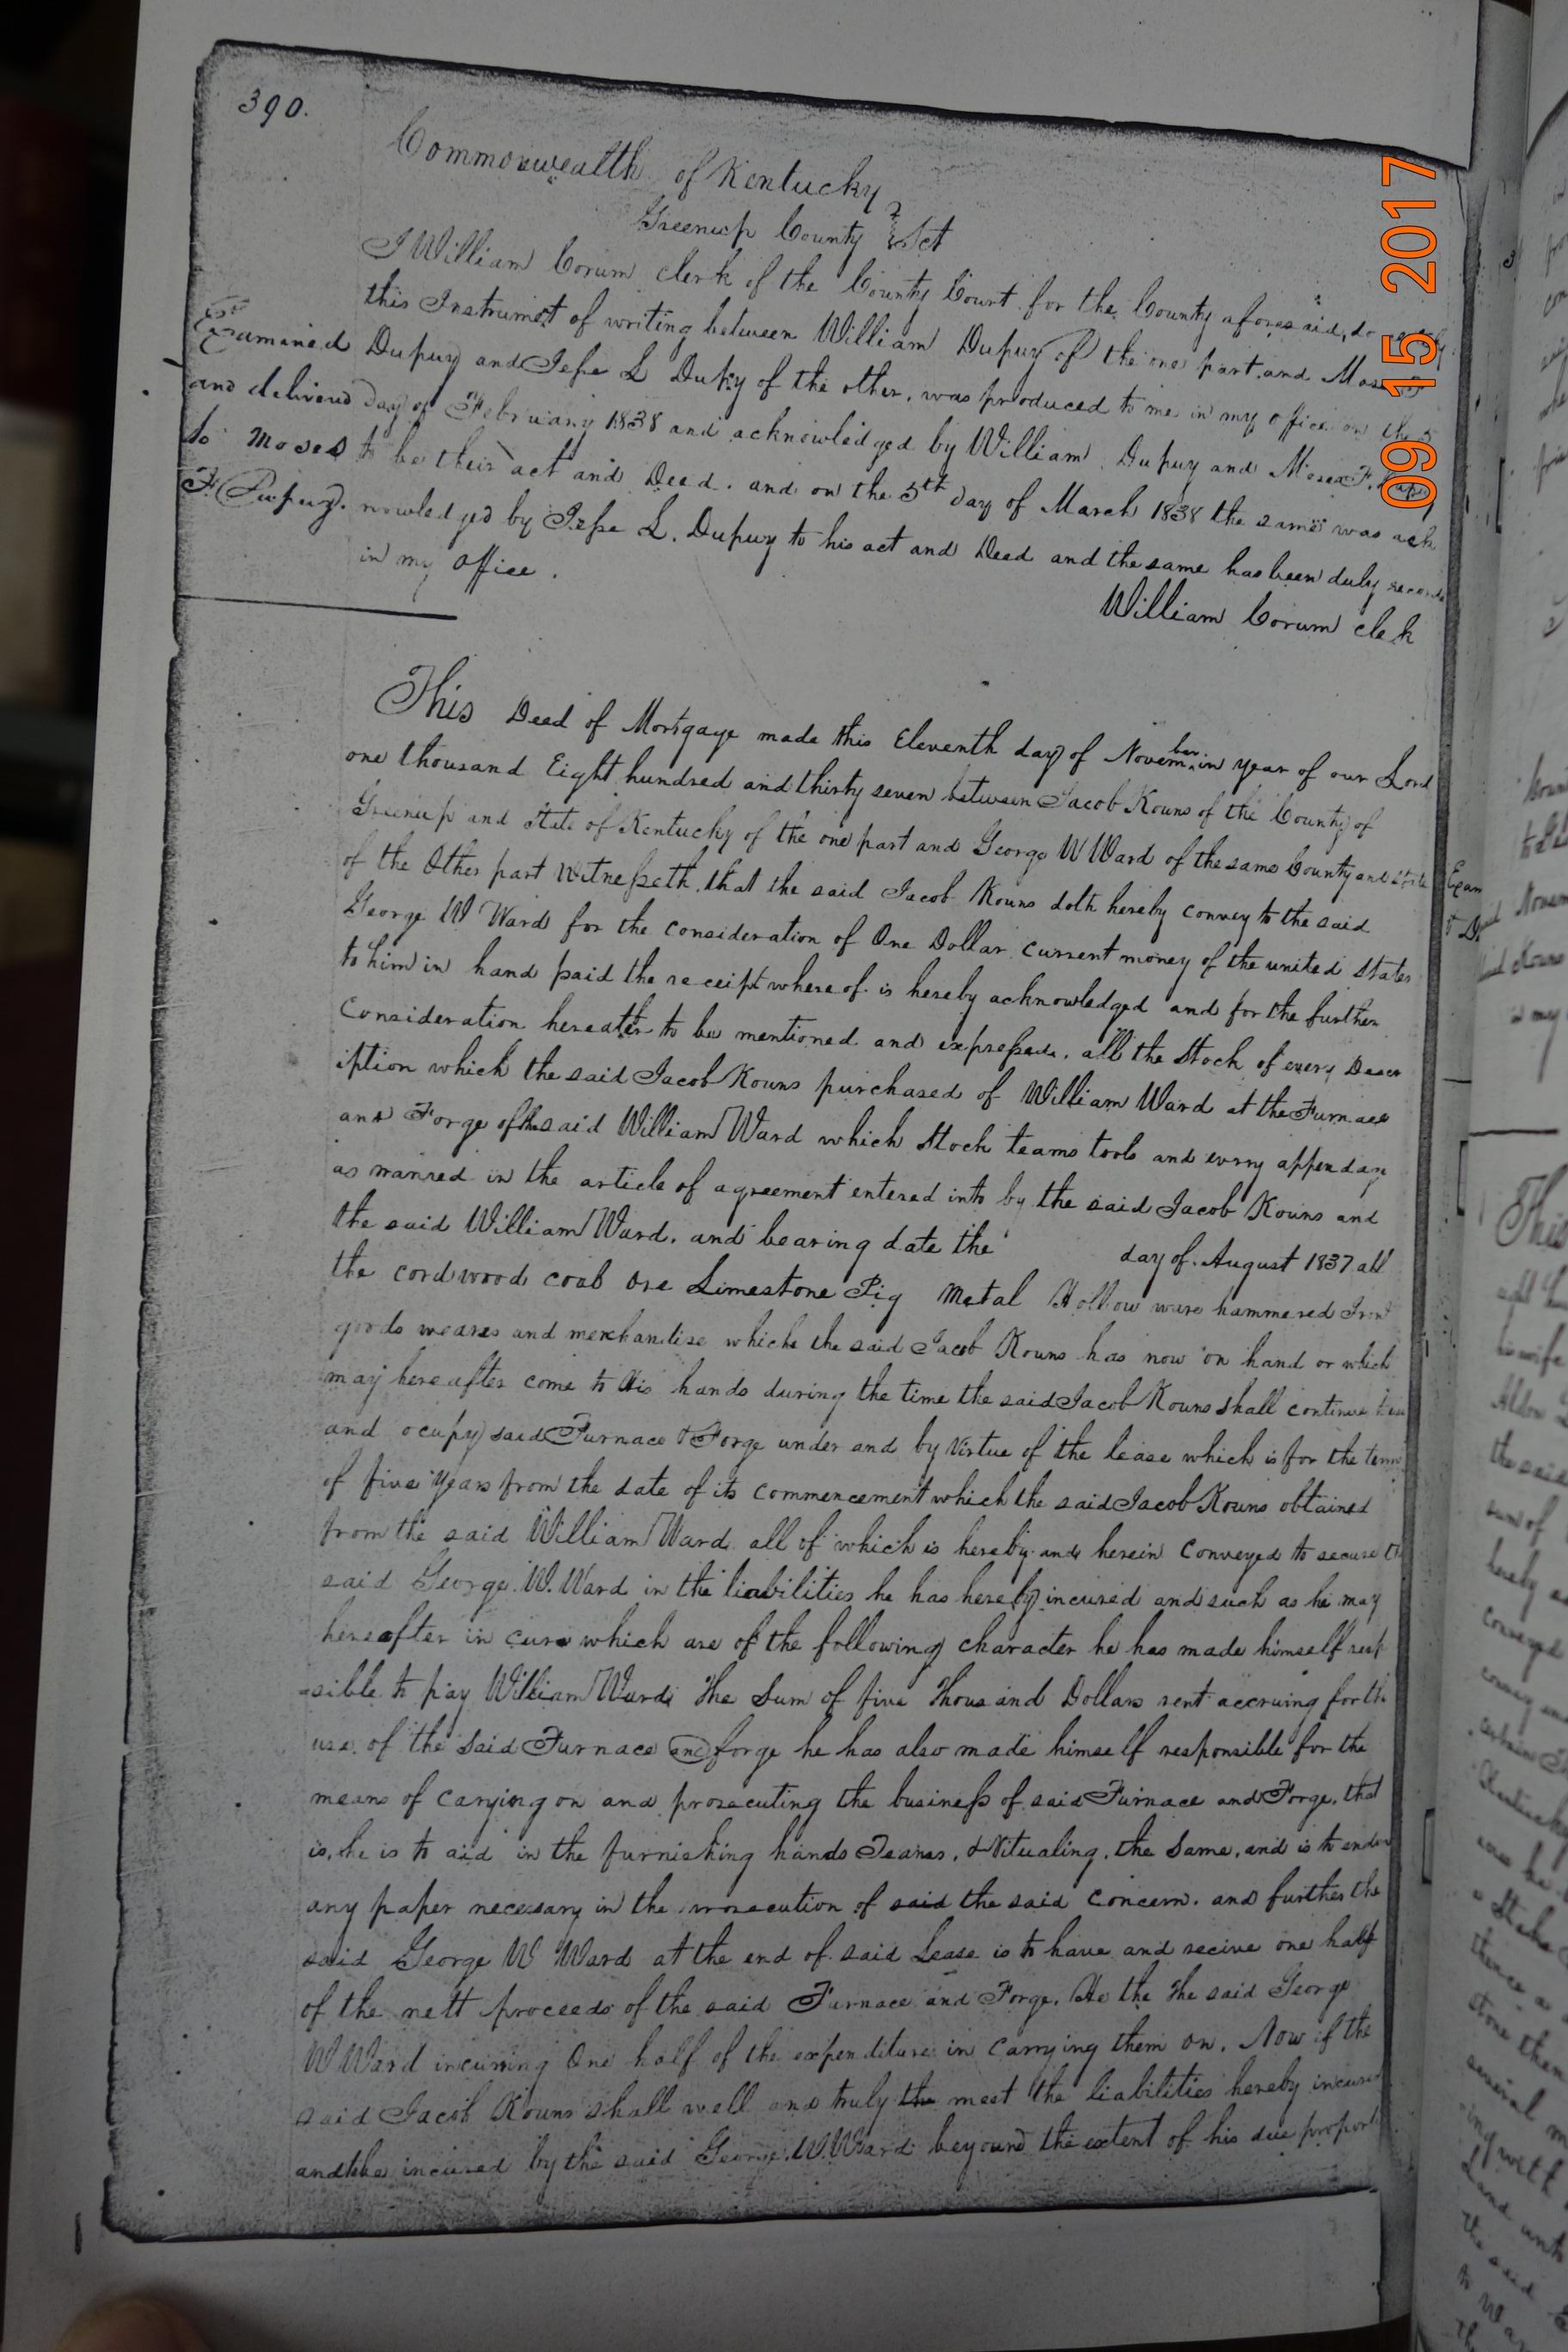 390.
Commonwealth of Kentucky
Greenup County Sct
I William Corum clerk of the County Court for the County aforesaid, do
this Instrument of writing between William Dupuy of the one part and Moses
Examined
Dupuy and Jesse L Dupuy of the other, was produced to me in my office on the 5
and delivered
day of February 1838 and acknowledged by William Dupuy and Moses F. Dupuy
to Moses
to be their act and Deed. and on the 5th day of March 1838 the same was ack
F. Dupuy.
nowledged by Jesse L. Dupuy to his act and Deed and the same has been duly
in my office.
William Corum clek
This Deed of Mortgage made this Eleventh day of November in year of our Lord
one thousand Eight hundred and thirty seven between Jacob Kouns of the County of
Greenup and State of Kentucky of the one part and George W Ward of the same County and State
of the Other part Witnesseth. that the said Jacob Kouns doth hereby convey to the said
George W Ward for the consideration of One Dollar current money of the united States
to him in hand paid the receipt whereof is hereby acknowledged and for the further
Consideration hereater to be mentioned and expressed. all the Stock of every Descr
iption which the said Jacob Kouns purchased of William Ward at the Furnace
and Forge of the said William Ward which Stock teams tools and every appendage
as manred in the article of agreement entered into by the said Jacob Kouns and
the said William Ward. and bearing date the day of August 1837 all
the cord wood coal ore Limestone Pig Metal Hollow ware hammered Iron
goods weares and merchandise which the said Jacob Kouns has now on hand or which
may hereafter come to his hands during the time the said Jacob Kouns shall continue
and ocupy said Furnace & Forge under and by Virtue of the lease which is for the term
of five Years from the date of its commencement which the said Jacob Kouns obtained
from the said William Ward all of which is hereby and herein Conveyed to secure
said George W. Ward in the liabilities he has hereby incured and such as he may
hereafter in cure which are of the following character he has made himself resp
sible to pay William Ward the Sum of five Thousand Dollars rent accruing for the
use of the said Furnace and forge he has also made himself responsible for the
means of carying on and prosecuting the business of said Furnace and Forge. that
is, he is to aid in the furnishing hands Teams, & Vitualing, the Same, and is to
any paper necessary in the prosecution of said the said Concern. and further the
said George W Ward at the end of said Lease is to have and recive one half
of the nett proceeds of the said Furnace and Forge. He the The said George
W Ward incuring One half of the expenditure in carrying them on. Now if the
said Jacob Kouns shall well and truly the meet the liabilities hereby incured
and incured by the said George W. Ward beyound the extent of his due proport
09 15 2017